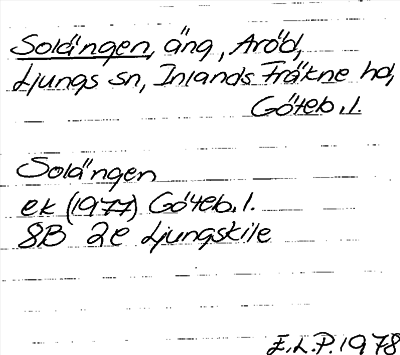 Solängen, äng, Aröd,
Ljungs sn, Inlands Fräkne hd,
Göteb. l.
Solängen
ek (1977) Göteb. l.
8B 2e Ljungskile
E.L.P. 1978